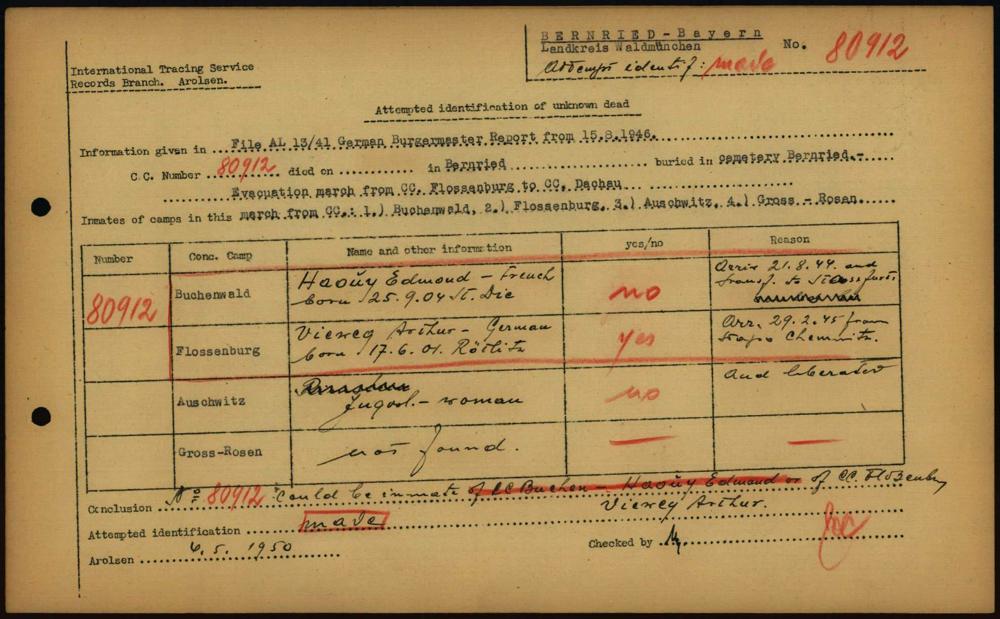 BERNRIED-Bayern
Landkreis Waldmünchen
No. 80912
Attempt identif: made
International Tracing Service
Records Branch. Arolsen.
Attempted identification of unknown dead
Information given in .. File AL 13/41 German Burgermaster Report from 15.8.1946.
C.C. Number 80912 died on in Bernried buried in cemetery Bernried.-
Evacuation march from CC. Flossenburg to CC. Dachau
Inmates of camps in this march from CC.: 1.) Buchenwald, 2.) Flossenburg, 3.) Auschwitz, 4.) Gross - Rosen.
Number Conc. Camp Name and other information yes/no Reason
80912
Buchenwald Haoüy Edmond - French born 25.9.04 St. Die no Arriv. 21.8.44. and transf. to Stassfurt
Flossenburg Viereg Arthur - German born 17.6.01. Rötlitz yes Arr. 29.2.45 from Stapo Chemnitz.
Auschwitz Jugosl. - woman no And liberated
Gross-Rosen not found. — —
Conclusion No 80912 could be inmate of CC Buchen - Haoüy Edmond or of CC. Floßenbg
Viereg Arthur.
Attempted identification made
Arolsen 6.5. 1950 Checked by